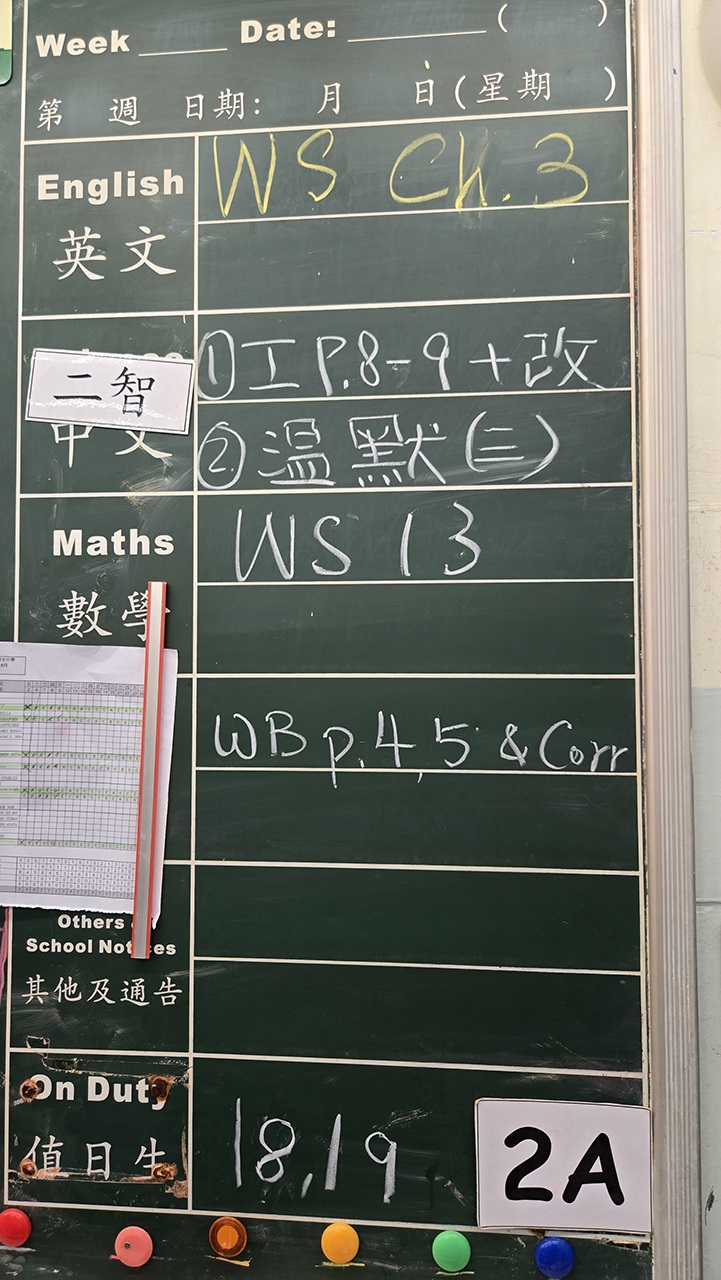 Week ____ Date: ________ ( )
第 週 日期: 月 日(星期 )
English
WS Ch.3
英文
①工 P.8-9+改
二智
中文
②温默(三)
Maths
WS 13
數學
WB p.4,5 & Corr
Others
School Notices
其他及通告
On Duty
值日生
18,19
2A